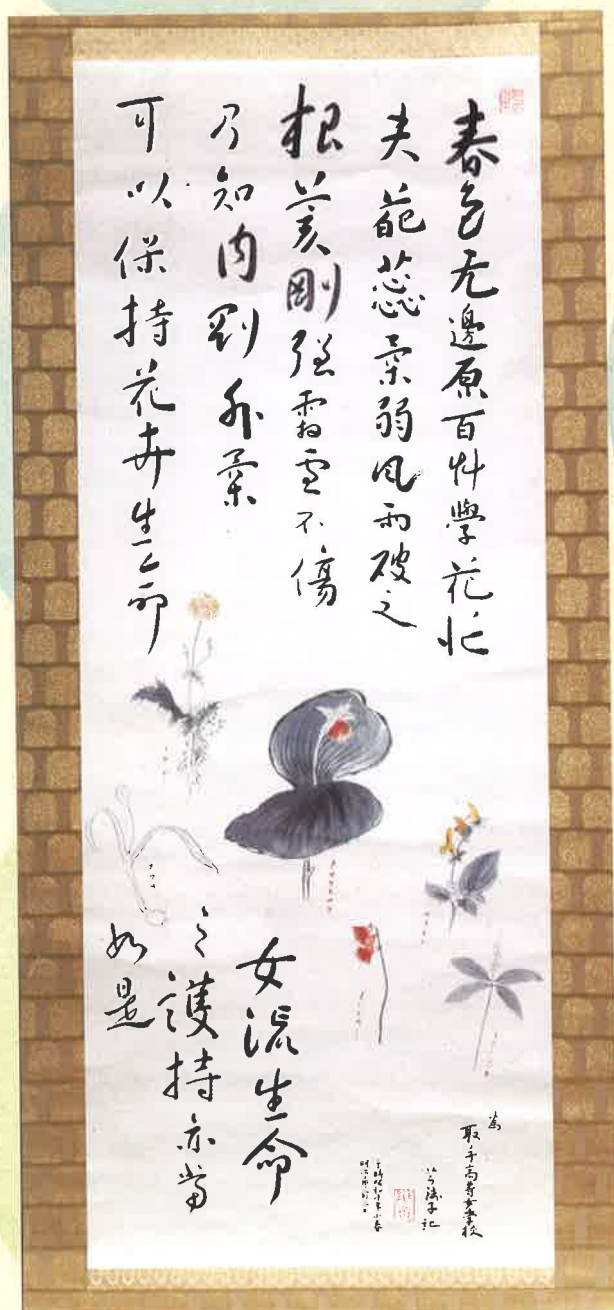 春色无邊原百艸學花忙
夫葩蕊柔弱風雨破之
根荄剛強霜雪不傷
乃知内剛外柔
可以保持花卉生命
女流生命
之護持亦當
如是
為
取手高等女学校